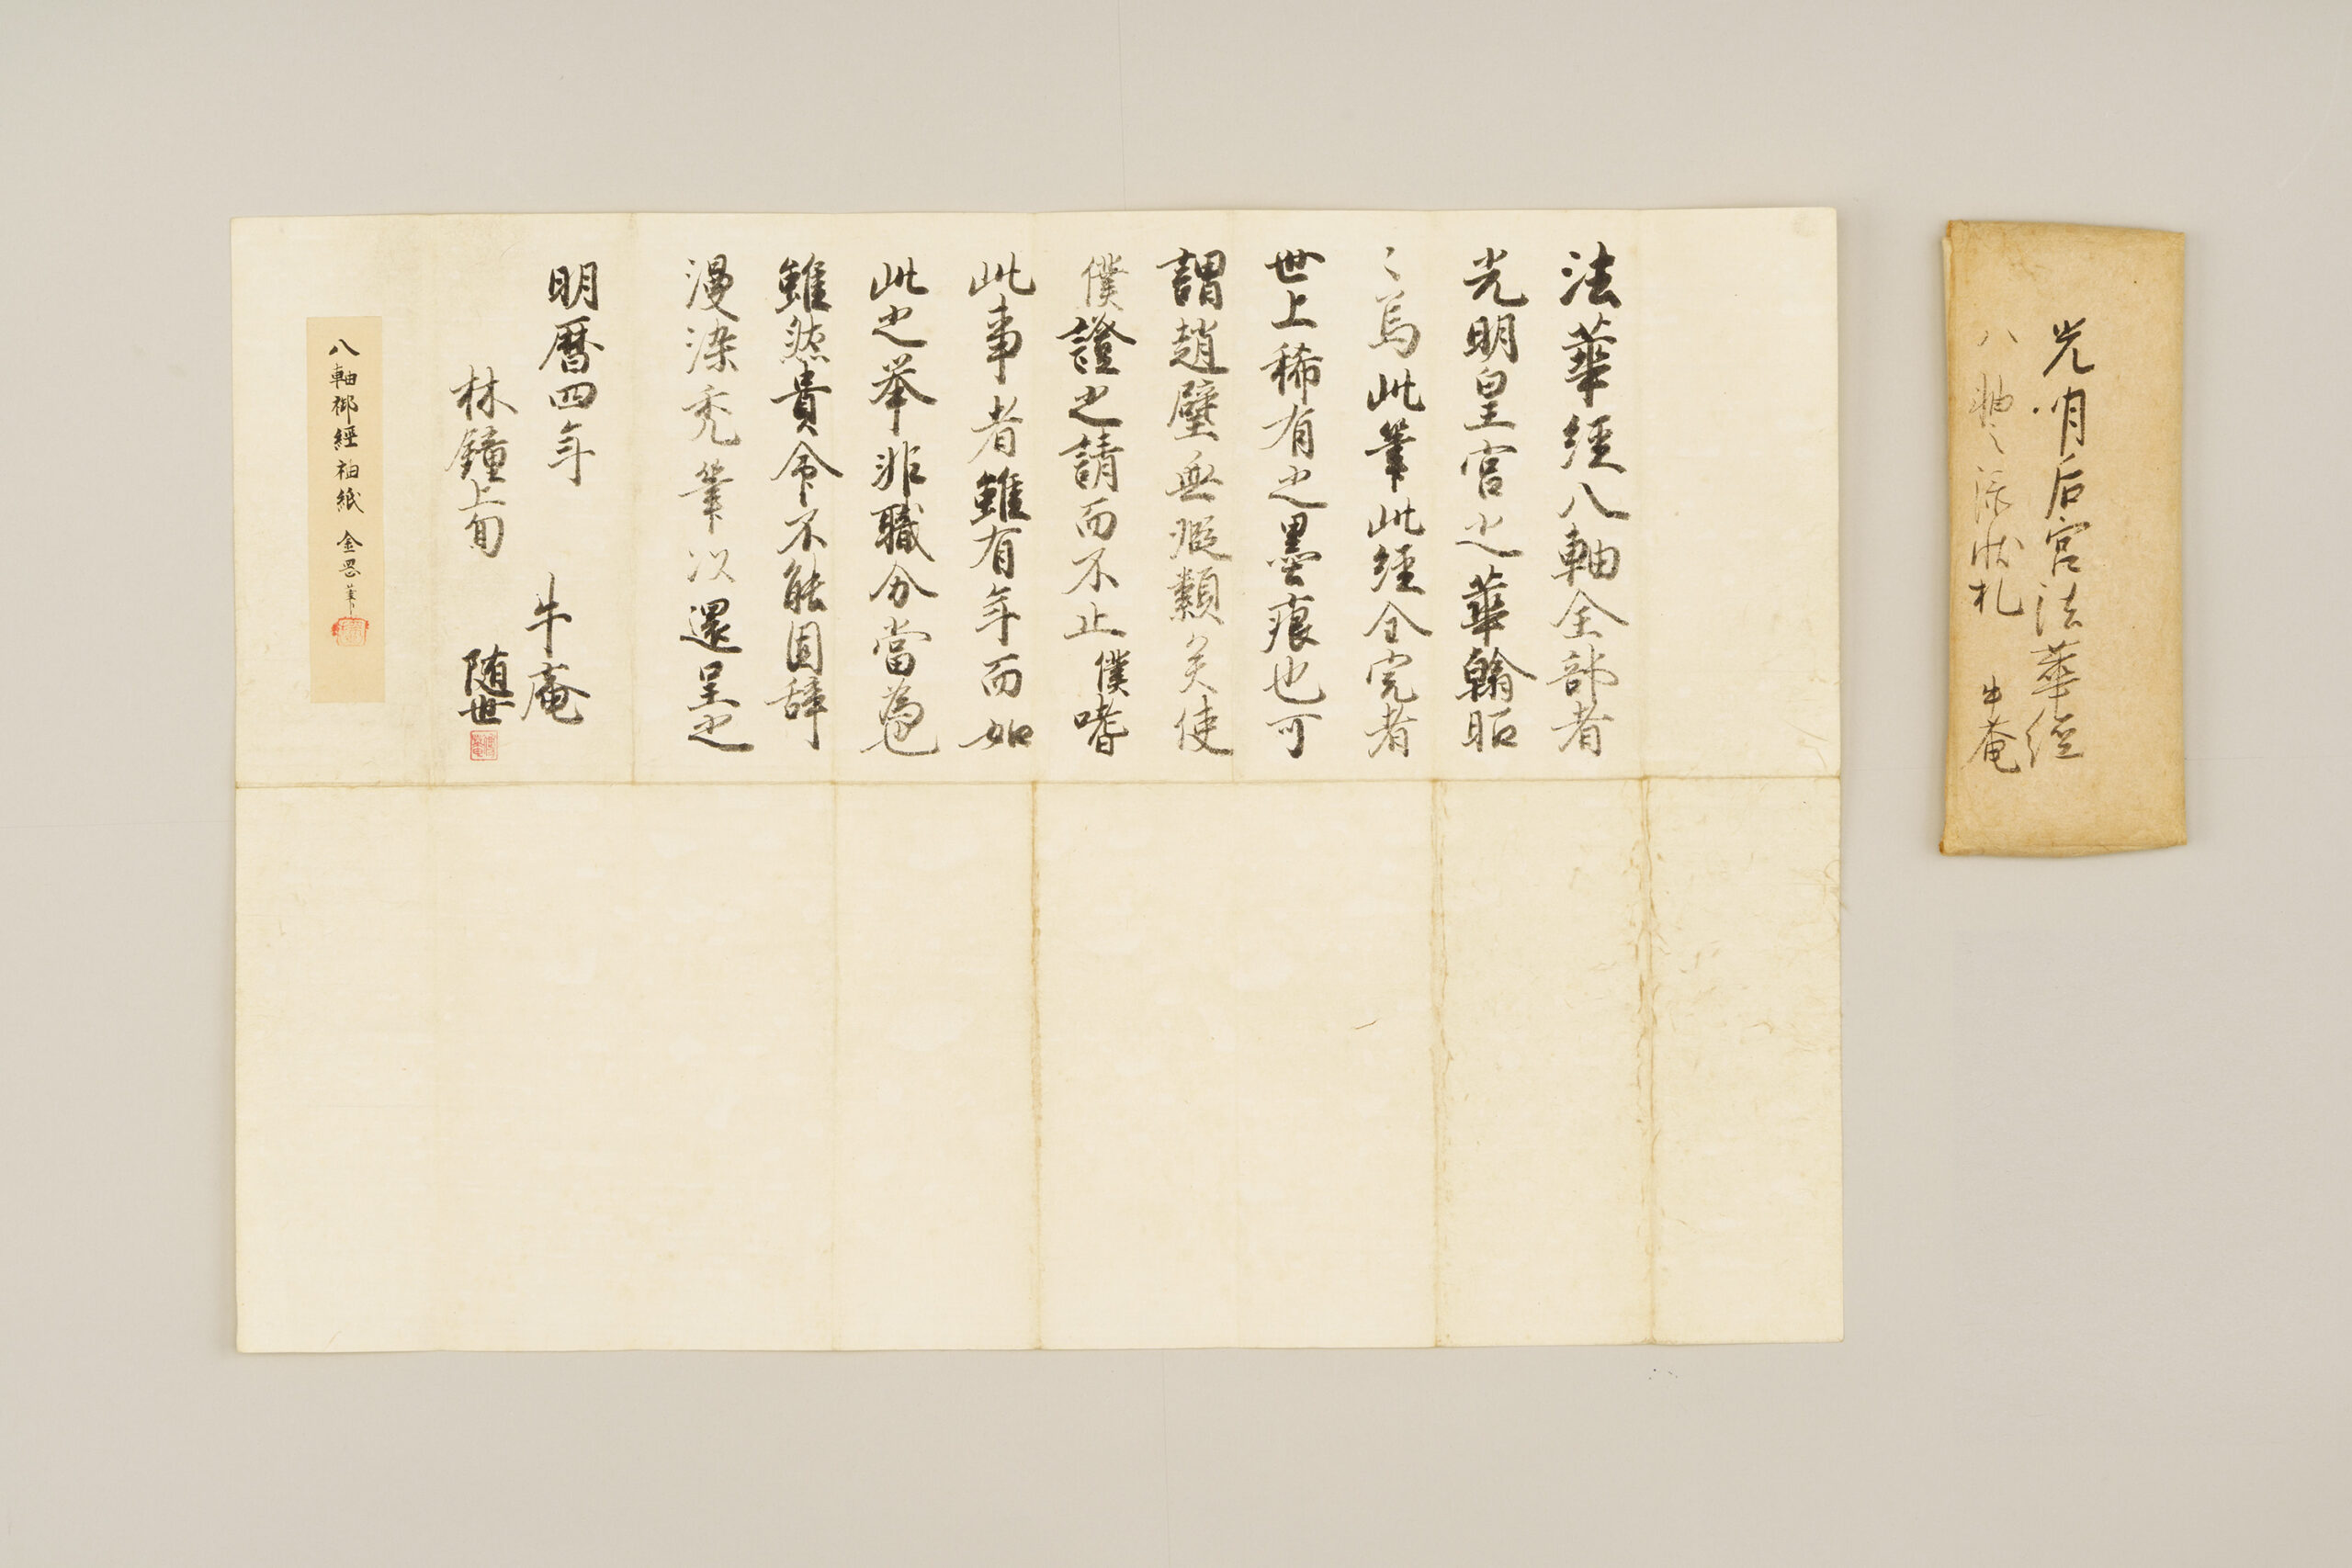 光明后宮法華經
八軸之添状札 牛庵
法華經八軸全部者
光明皇宮之華翰昭
〻焉此筆此經全完者
世上稀有之墨痕也可
謂趙璧無瑕纇矣使
僕證之請而不止僕嗜
此事者雖有年而如
此之举非職分當為也
雖然貴命不能固辞
漫染禿筆以還呈之
明暦四年
林鐘上旬
牛庵
随世
八軸御經袖紙 金思筆